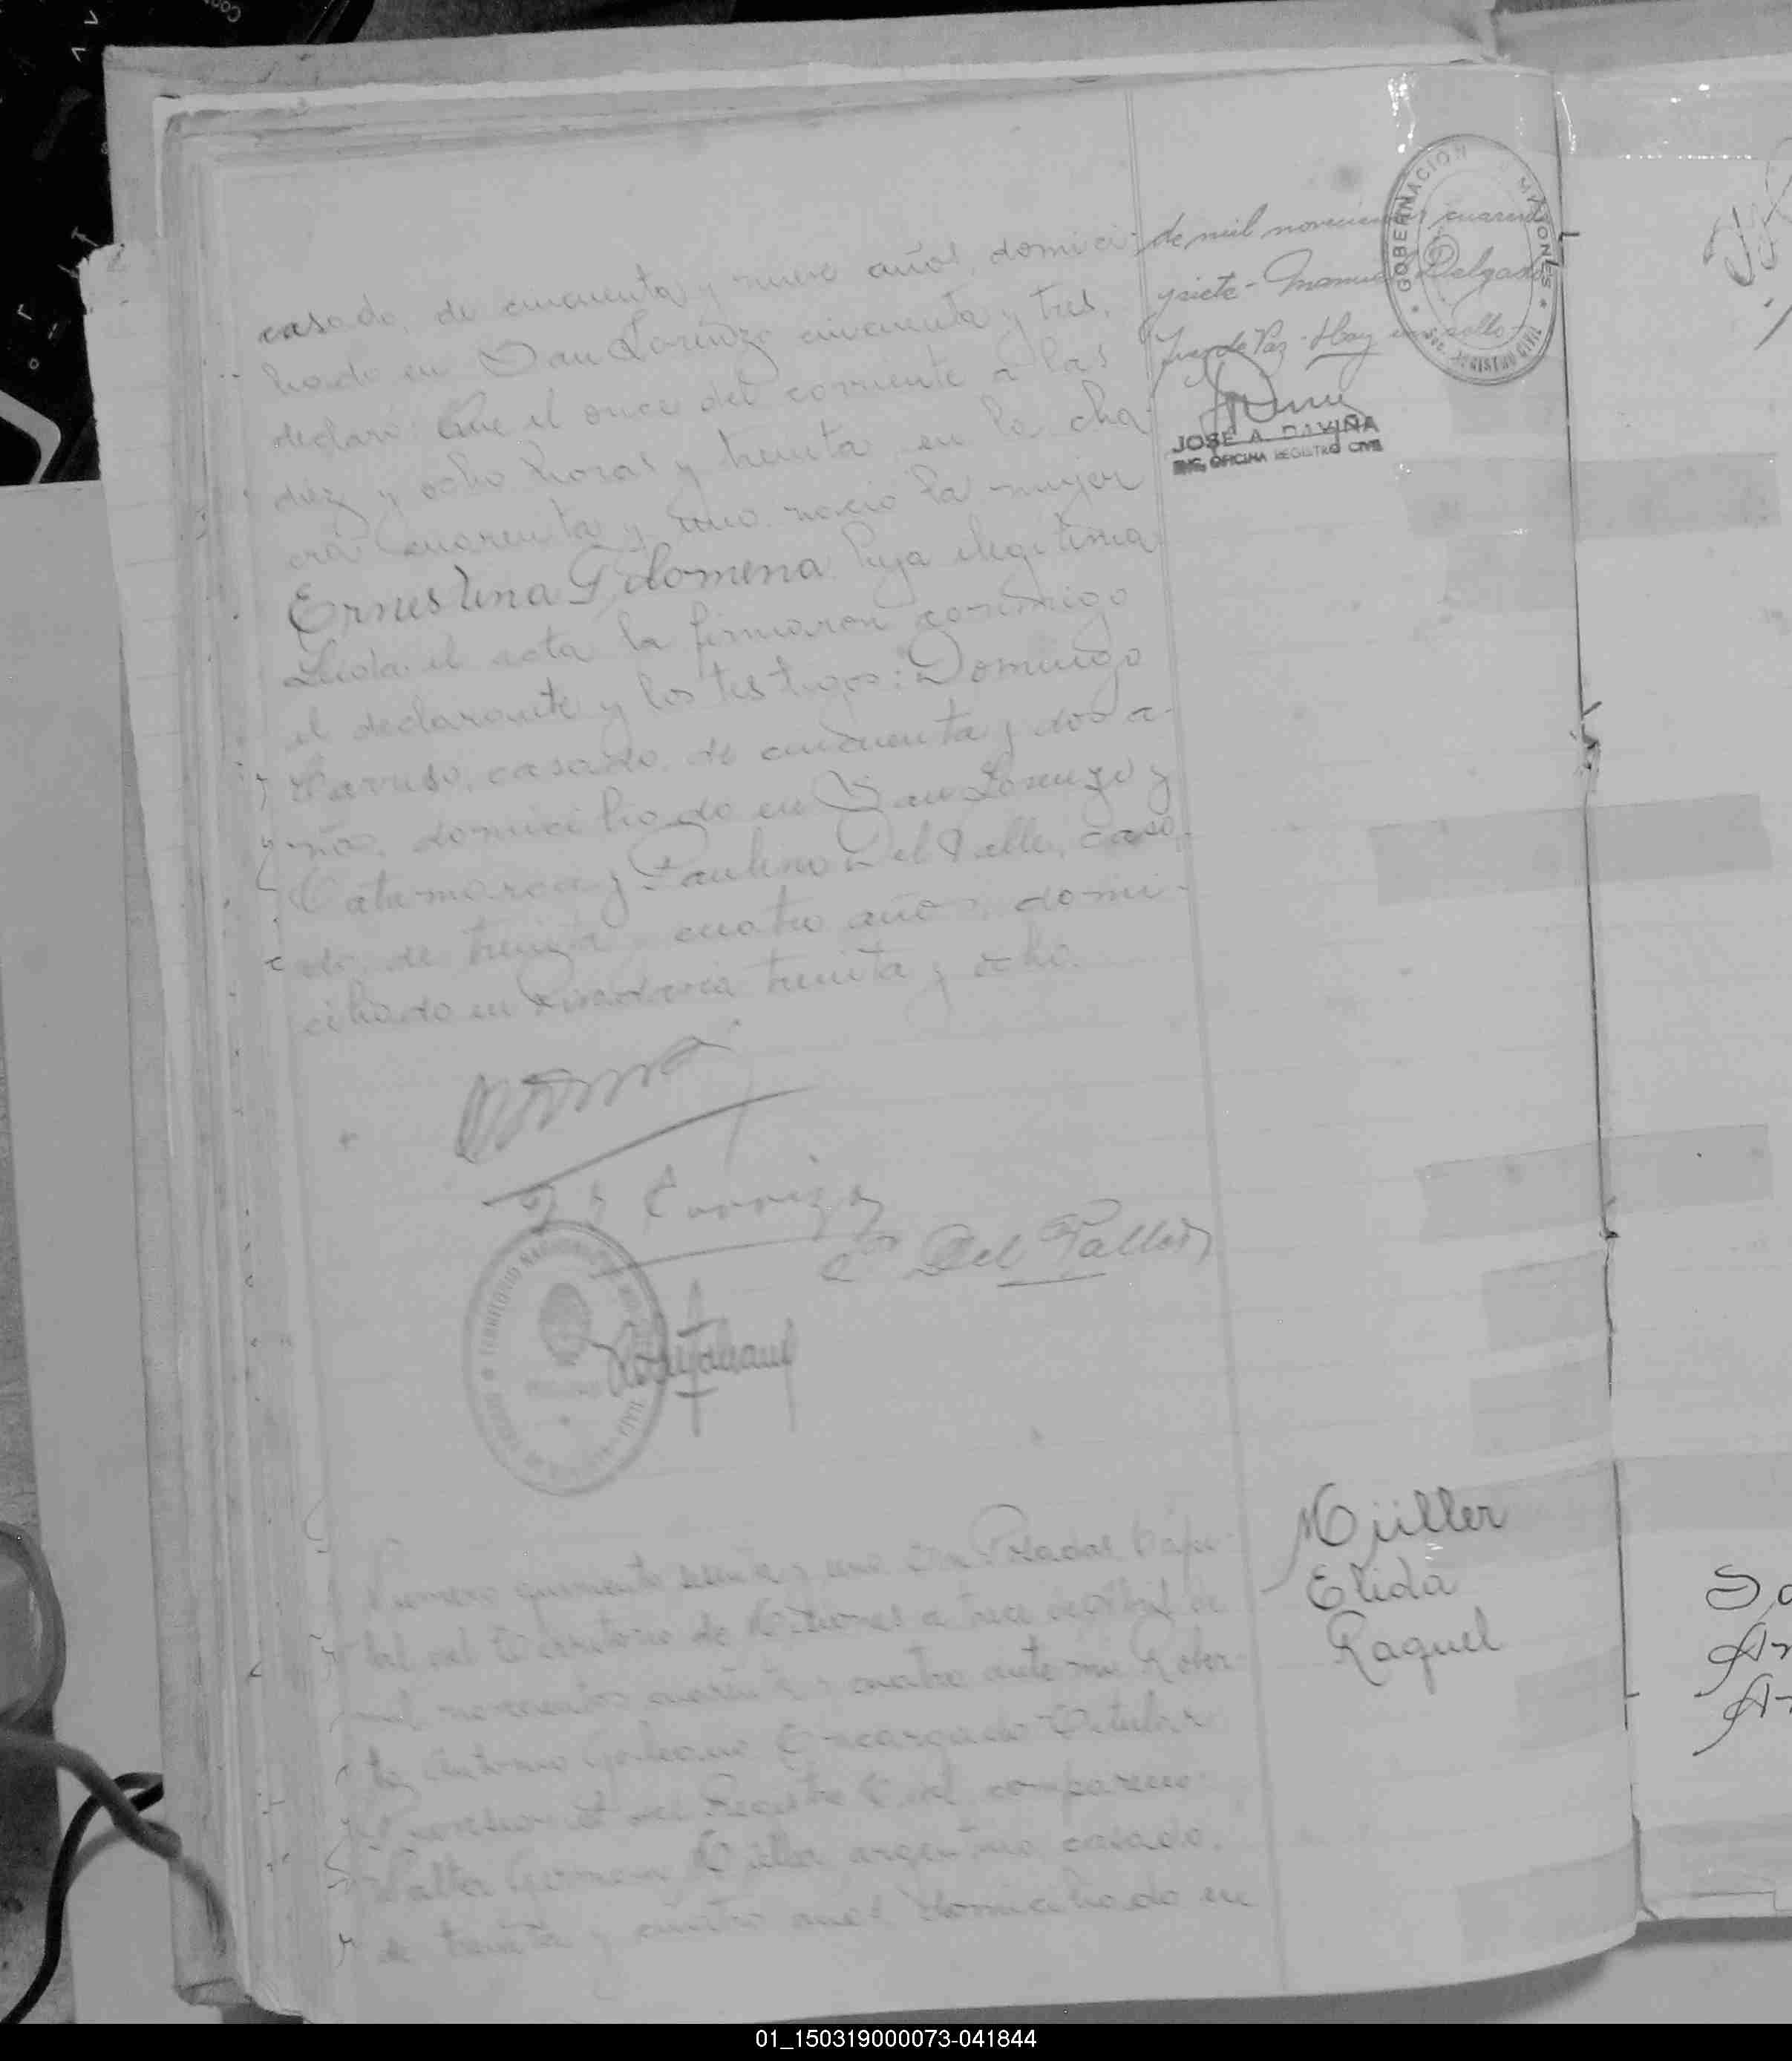 casado, de cincuenta y nueve años, domici-
liado en San Lorenzo cincuenta y tres,
declaró: Que el once del corriente a las
diez y ocho horas y treinta en la cha-
cra cuarenta y uno nació la mujer
Ernestina Filomena hija ilegitima
Leida el acta la firmaron conmigo
el declarante y los testigos: Domingo
casado, de cincuenta y dos a-
ños, domiciliado en San Lorenzo y
Catamarca y Paulino Del Valle, casa-
do, de treinta y cuatro años, domi-
ciliado en Rivadavia treinta y ocho.
de mil novecientos cuarenta
y siete - Manuel Delgado
Juez de Paz - Hay un sello
GOBERNACION MISIONES
SEC. REGISTRO CIVIL
JOSÉ A. DAVIÑA
ENC. OFICINA REGISTRO CIVIL
Del Valle
TERRITORIO NACIONAL DE MISIONES
Müller
Elida
Raquel
Numero quinientos sesenta y uno. En Posadas Capi-
tal del Territorio de Misiones a trece de Abril de
mil novecientos cuarenta y cuatro ante mi Rober-
to Antonio Encargado Titular
del Registro Civil compareció
German Müller argentino, casado,
de treinta y cuatro años domiciliado en
So
Ar
Ar
01_150319000073-041844